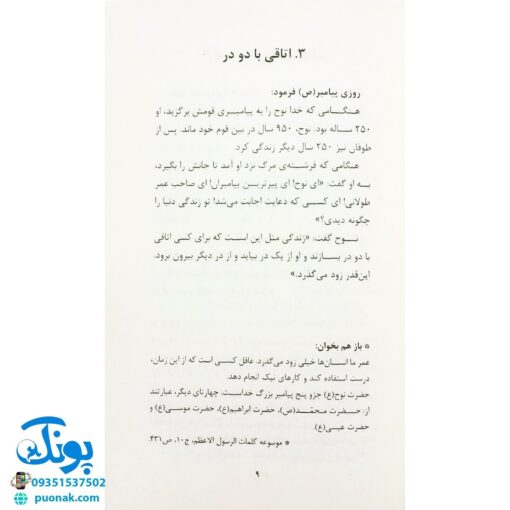 ۳. اتاقی با دو در
روزی پیامبر(ص) فرمود:
هنگامی که خدا نوح را به پیامبری قومش برگزید، او
۲۵۰ ساله بود. نوح، ۹۵۰ سال در بین قوم خود ماند. پس از
طوفان نیز ۲۵۰ سال دیگر زندگی کرد.
هنگامی که فرشته‌ی مرگ نزد او آمد تا جانش را بگیرد،
به او گفت: «ای نوح! ای پیرترین پیامبران! ای صاحب عمر
طولانی! ای کسی که دعایت اجابت می‌شد! تو زندگی دنیا را
چگونه دیدی؟»
نوح گفت: «زندگی مثل این است که برای کسی اتاقی
با دو در بسازند و او از یک در بیاید و از در دیگر بیرون برود.
این‌قدر زود می‌گذرد.»
* باز هم بخوان:
عمر ما انسان‌ها خیلی زود می‌گذرد. عاقل کسی است که از این زمان،
درست استفاده کند و کارهای نیک انجام دهد.
حضرت نوح(ع) جزو پنج پیامبر بزرگ خداست. چهارتای دیگر، عبارتند
از: حضرت محمّد(ص)، حضرت ابراهیم(ع)، حضرت موسی(ع) و
حضرت عیسی(ع).
* موسوعه کلمات الرسول الاعظم، ج۱۰، ص۴۳۱.
۹
پونک
09351537502
puonak.com